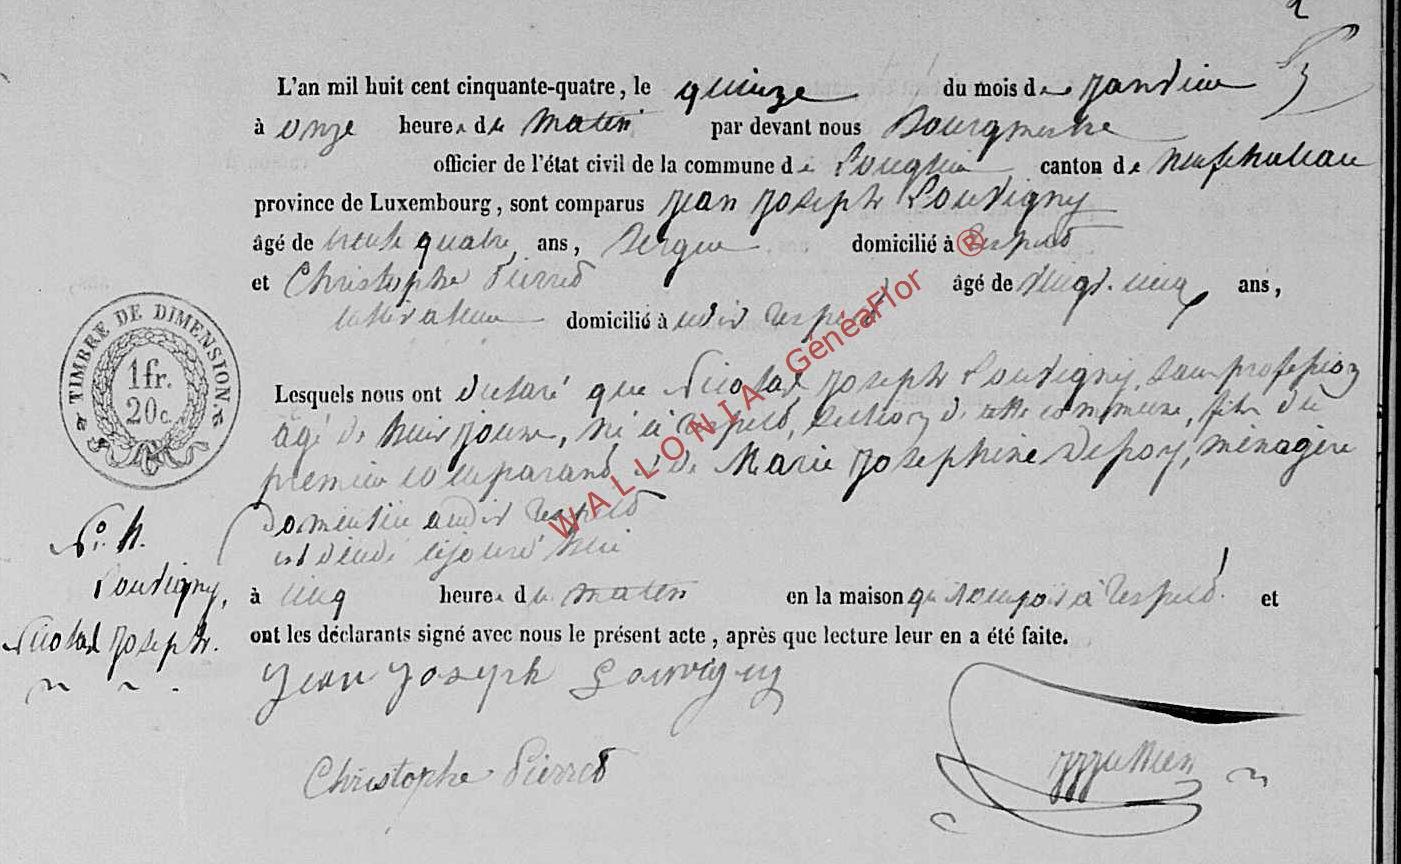 L'an mil huit cent cinquante-quatre, le quinze du mois de janvier
à onze heures du matin par devant nous Bourgmestre
officier de l'état civil de la commune de canton de Neufchateau
province de Luxembourg, sont comparus Jean Joseph Louvigny
âgé de trente quatre ans, Berger domicilié à Respelt
et Christophe Pierret âgé de vingt-cinq ans,
cultivateur domicilié à audit Respelt
Lesquels nous ont déclaré que Nicolas Joseph Louvigny, sans profession
âgé de huit jours, né à Respelt, section de cette commune, fils du
premier comparant, et de Marie Josephine Depoy, ménagère
domiciliée audit Respelt
est décédé aujourd'hui
à cinq heures du matin en la maison à Respelt. et
ont les déclarants signé avec nous le présent acte, après que lecture leur en a été faite.
N° 4.
Louvigny,
Nicolas Joseph.
Jean Joseph Louvigny
Christophe Pierret
TIMBRE DE DIMENSION
1 fr.
20 c.
WALLONIA GenéaFlor ®